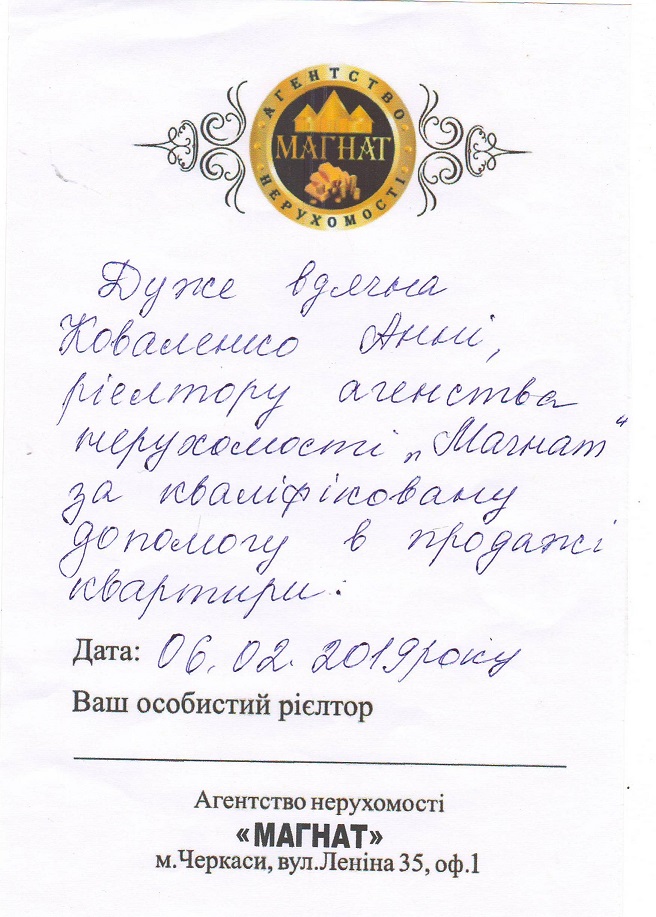 АГЕНТСТВО
МАГНАТ
НЕРУХОМОСТІ
Дуже вдячна
Коваленко Анні,
ріелтору агенства
нерухомості „Магнат“
за кваліфіковану
допомогу в продажі
квартири.
Дата: 06.02.2019 року
Ваш особистий рієлтор
Агентство нерухомості
«МАГНАТ»
м.Черкаси, вул.Леніна 35, оф.1